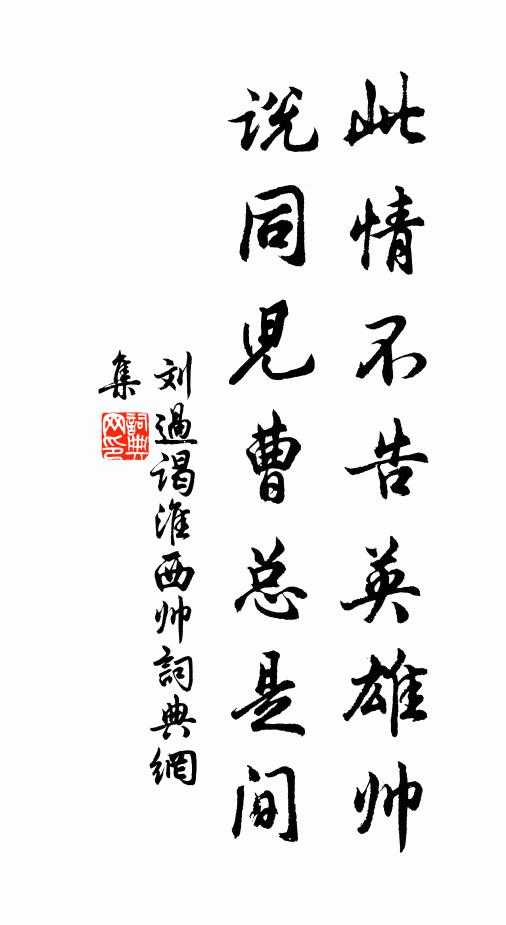 此情不告英雄帅
说同児曹总是间
刘過谒淮西帅詞典網
集
詞典网印